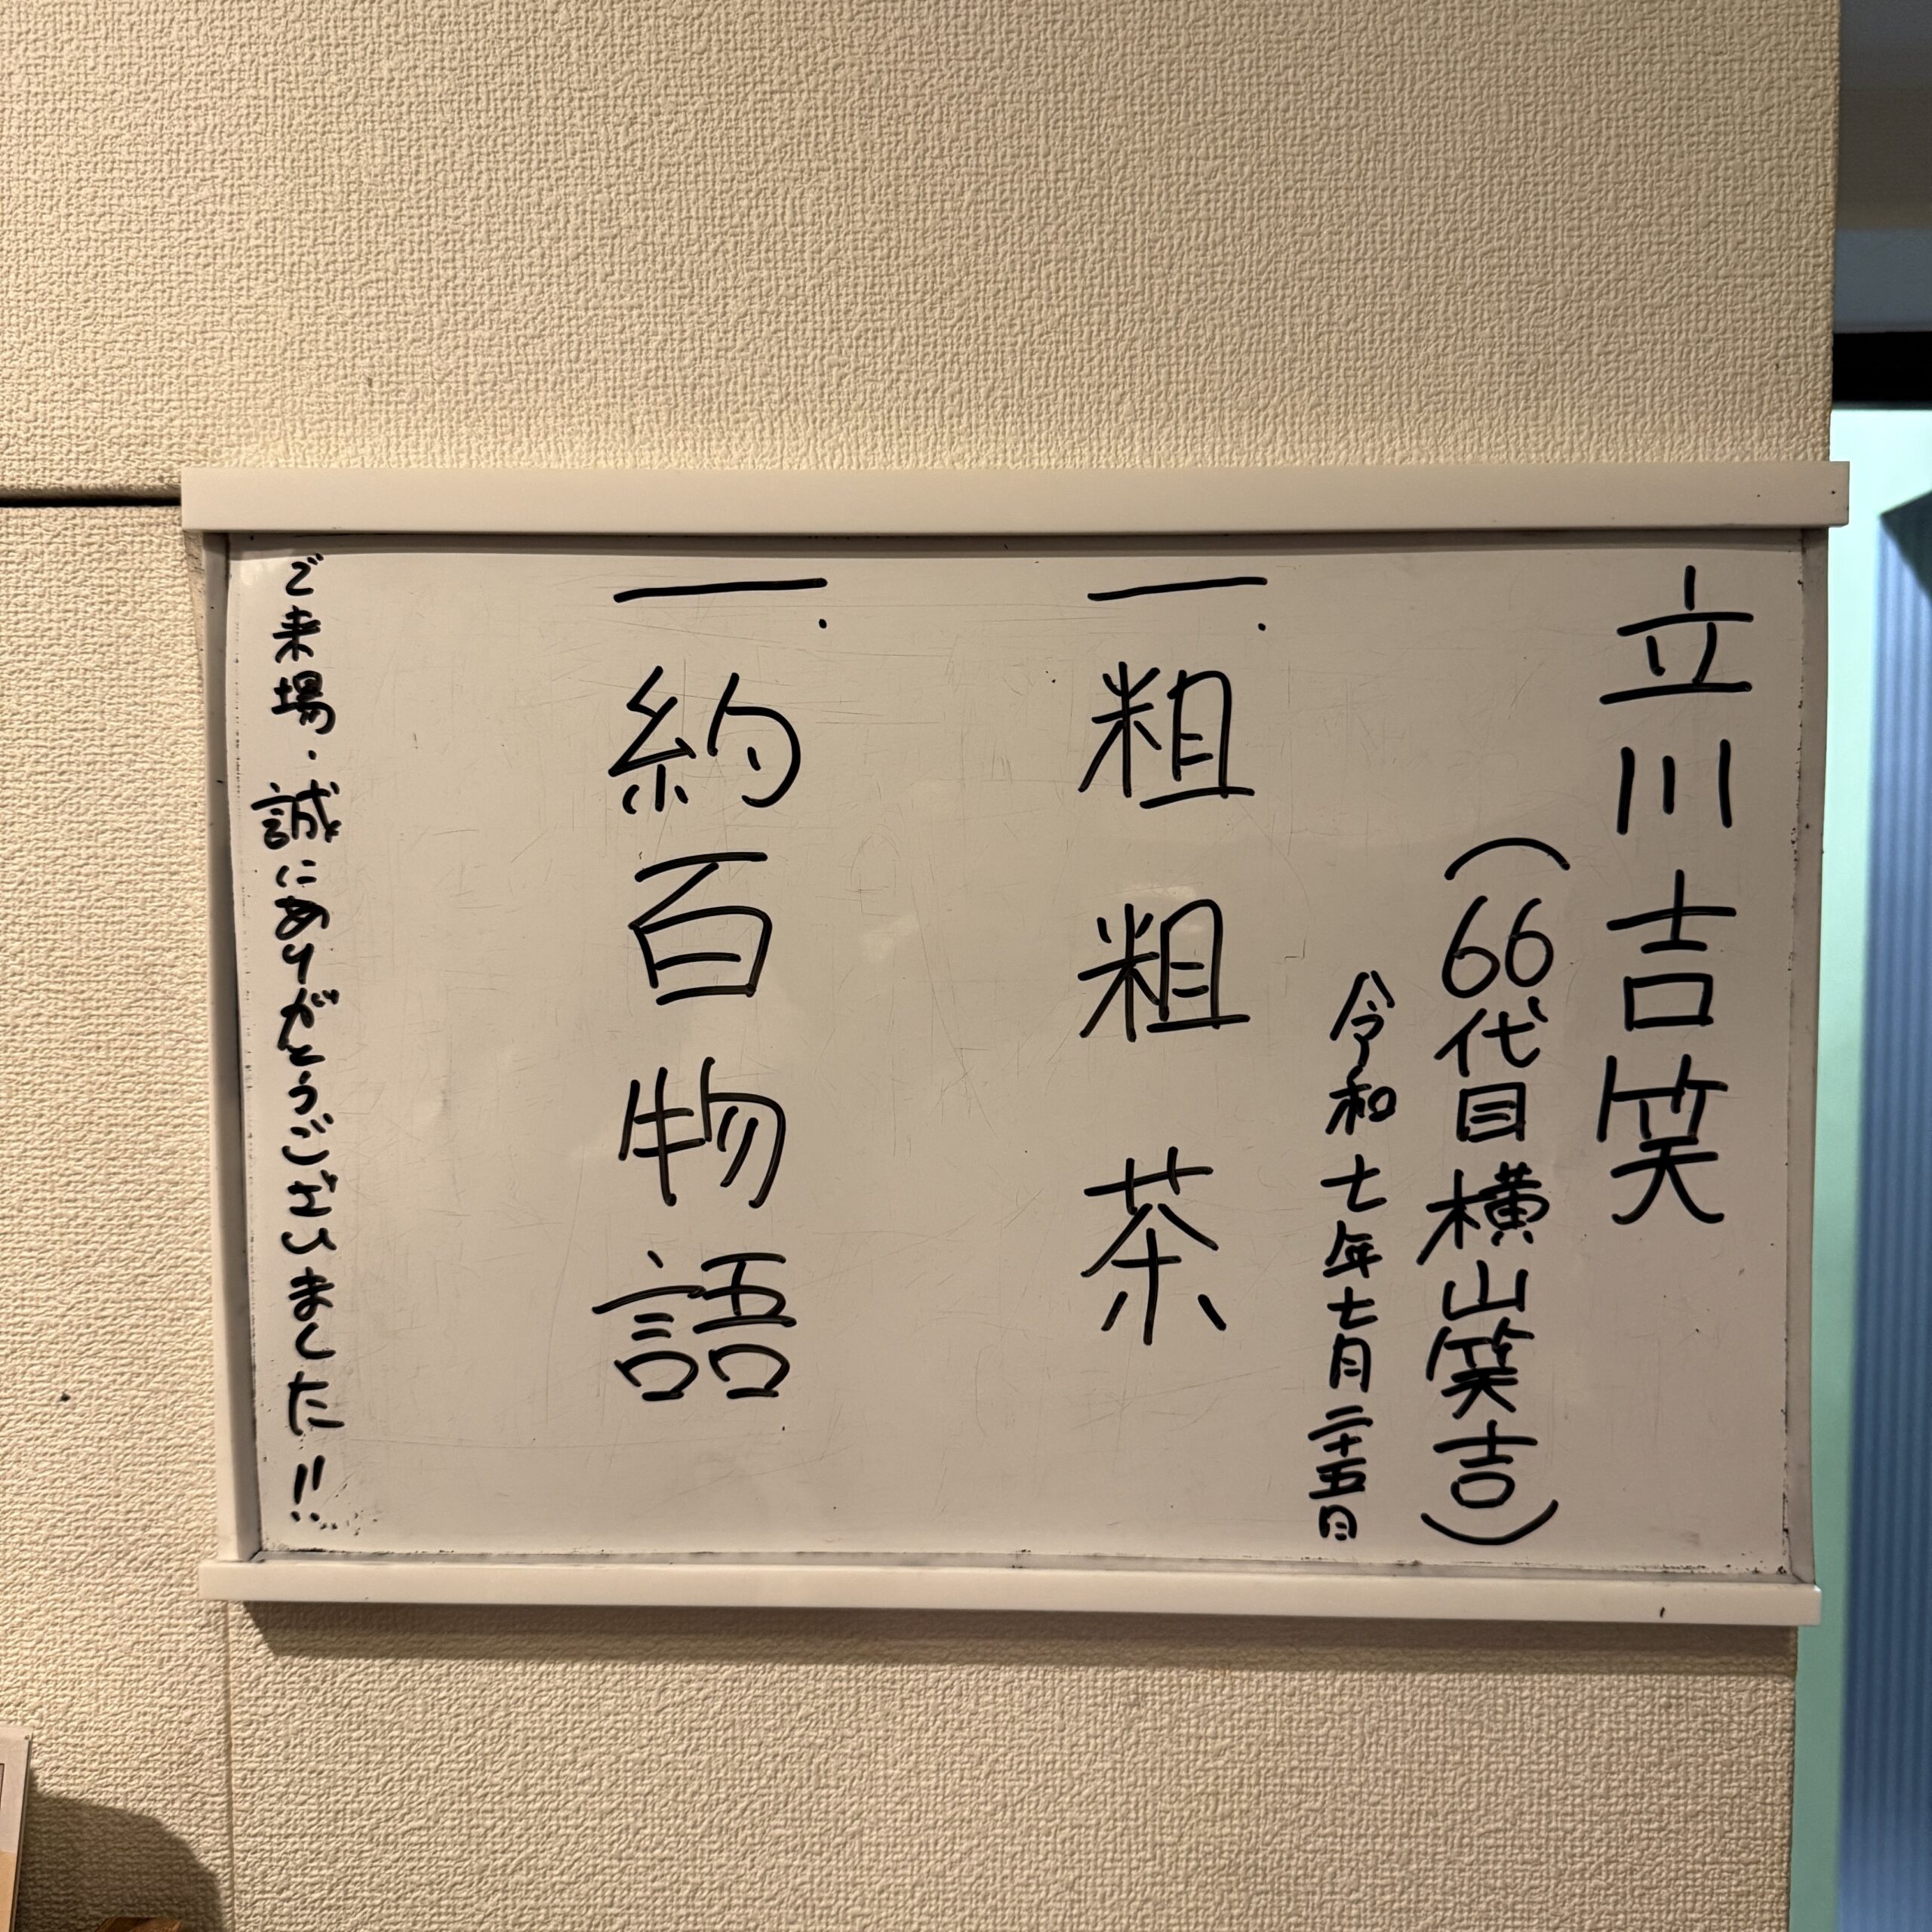 立川吉笑
（66代目横山笑吉）
令和七年七月二十五日
一．粗粗茶
一．約百物語
ご来場、誠にありがとうございました!!